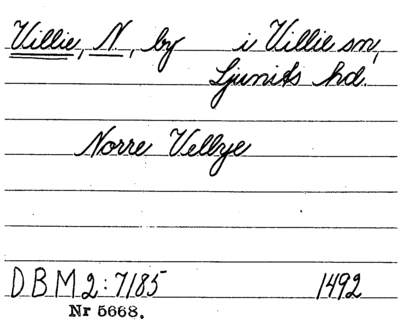 Villie, N., by i Villie sn,
Ljunits hd.
Norre Vellye
DBM2:7185 1492
Nr 5668.